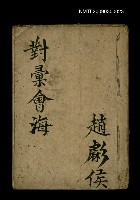 對彙會海
趙獻侯